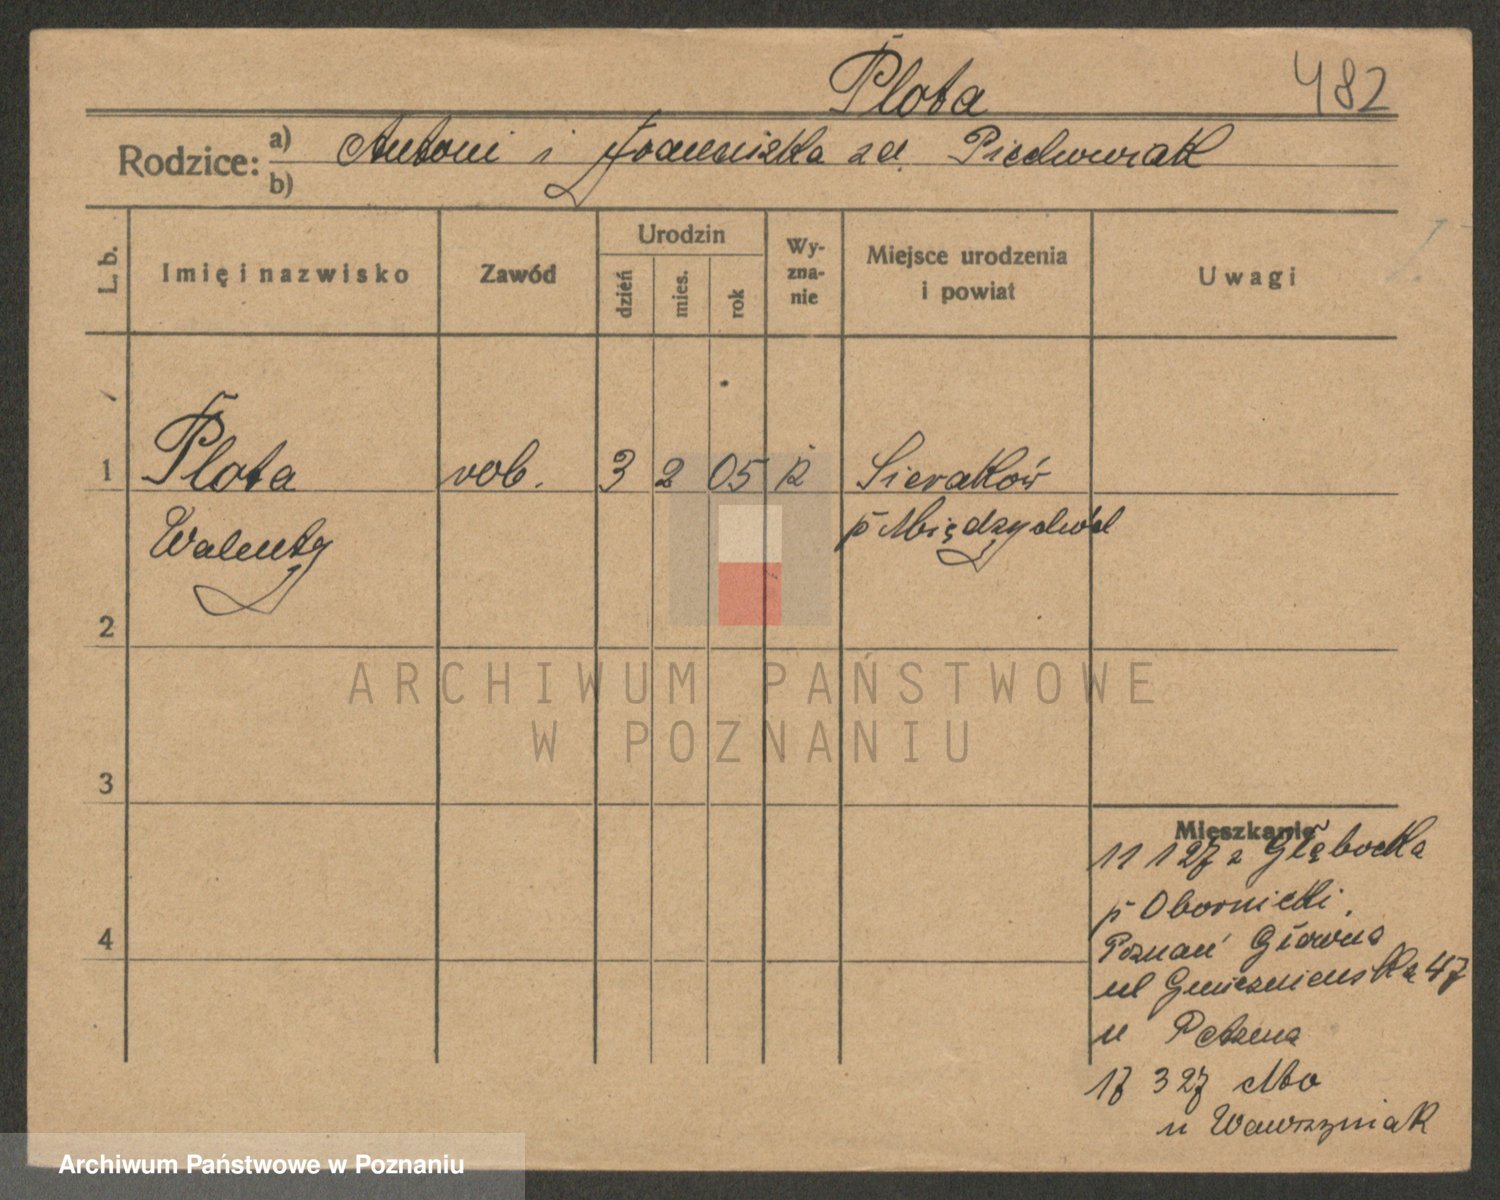 Plota 482
Rodzice: a) Antoni i Franciszka zd. Piechowiak
b)
L. b. Imię i nazwisko Zawód Urodzin dzień mies. rok Wy-zna-nie Miejsce urodzenia i powiat Uwagi
1 Plota rob. 3 2 05 R Sieraków
Walenty p Międzychód
2
3
4
Mieszkanie
11 1 27 z Głębocka
p Obornicki.
Poznań Główna
ul Gnieznienska 47
u
17 3 27
u Wawrzyniak
ARCHIWUM PAŃSTWOWE
W POZNANIU
Archiwum Państwowe w Poznaniu